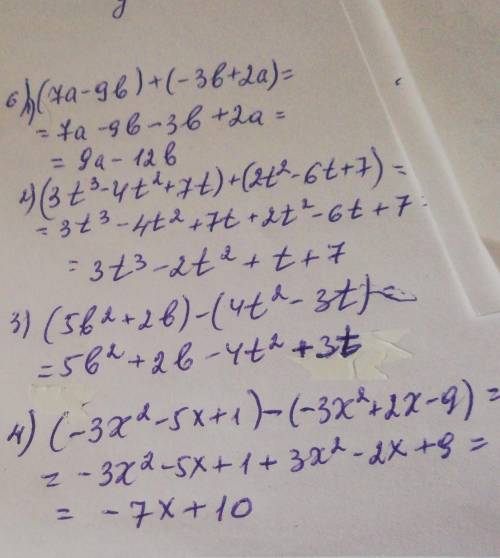 6) 1) (7a-9b)+(-3b+2a)=
=7a-9b-3b+2a=
=9a-12b
2) (3t³-4t²+7t)+(2t²-6t+7)=
=3t³-4t²+7t+2t²-6t+7=
=3t³-2t²+t+7
3) (5b²+2b)-(4t²-3t)=
=5b²+2b-4t²+3t
4) (-3x²-5x+1)-(-3x²+2x-9)=
=-3x²-5x+1+3x²-2x+9=
=-7x+10